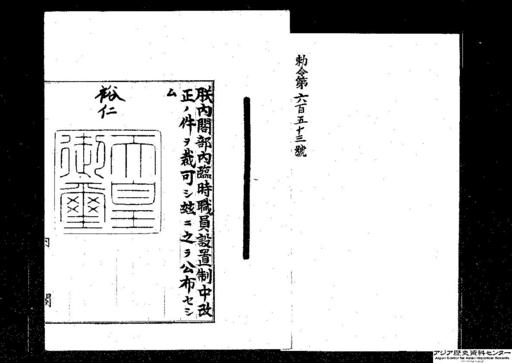 勅令第六百五十三號
朕內閣部內臨時職員設置制中改
正ノ件ヲ裁可シ玆ニ之ヲ公布セシ
ム
裕仁
天皇
御璽
內閣
アジア歴史資料センター
Japan Center for Asian Historical Records